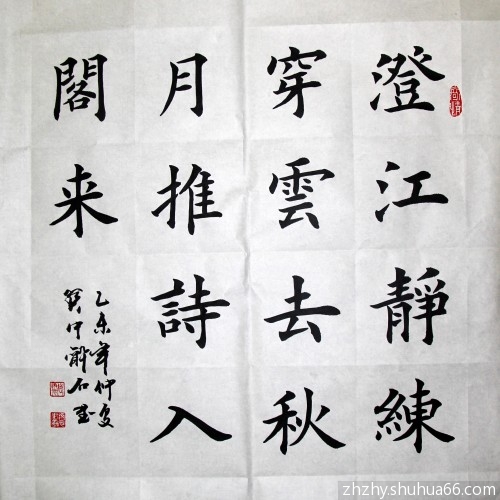 澄江靜練
穿雲去秋
月推詩入
閣来
乙未年仲夏
zhzhy.shuhua66.com